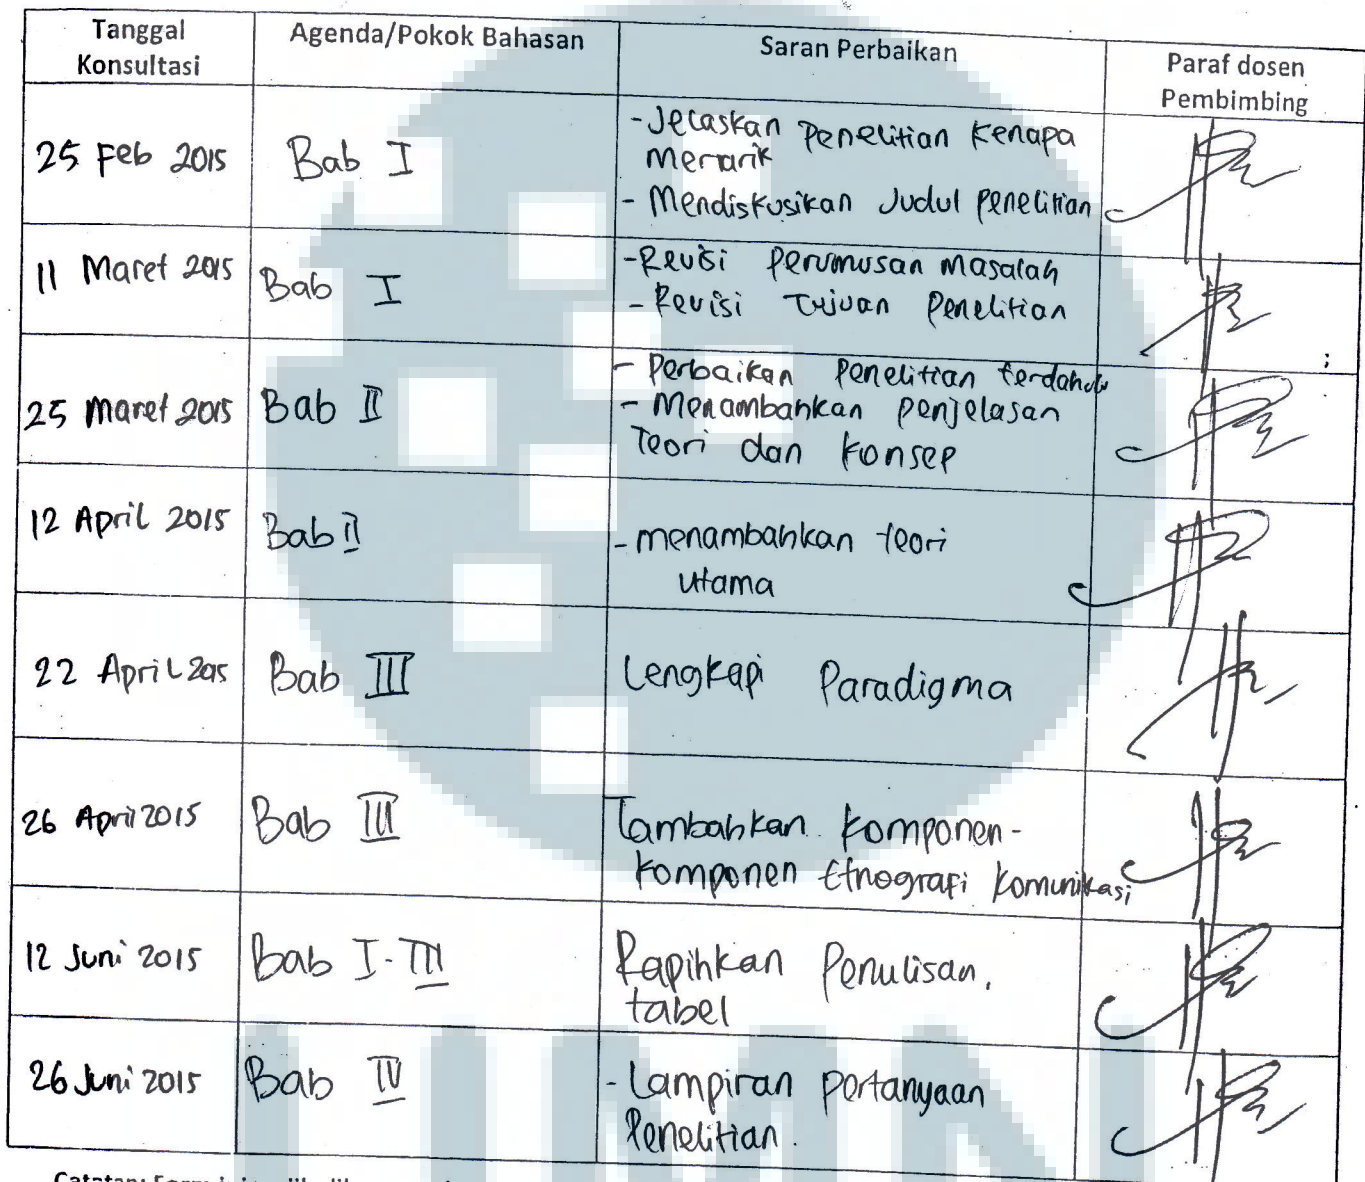 Tanggal Konsultasi
Agenda/Pokok Bahasan
Saran Perbaikan
Paraf dosen Pembimbing
25 Feb 2015
Bab I
- Jelaskan Penelitian Kenapa
Menarik
- Mendiskusikan Judul Penelitian
11 Maret 2015
Bab I
- Revisi Perumusan Masalah
- Revisi Tujuan Penelitian
25 Maret 2015
Bab II
- Perbaikan Penelitian terdahulu
- Menambahkan Penjelasan
Teori dan Konsep
12 April 2015
Bab II
- menambahkan teori
utama
22 April 2015
Bab III
Lengkapi Paradigma
26 April 2015
Bab III
Tambahkan Komponen-
Komponen Etnografi Komunikasi
12 Juni 2015
Bab I-III
Rapihkan Penulisan,
tabel
26 Juni 2015
Bab IV
- Lampiran Pertanyaan
Penelitian.
UMN